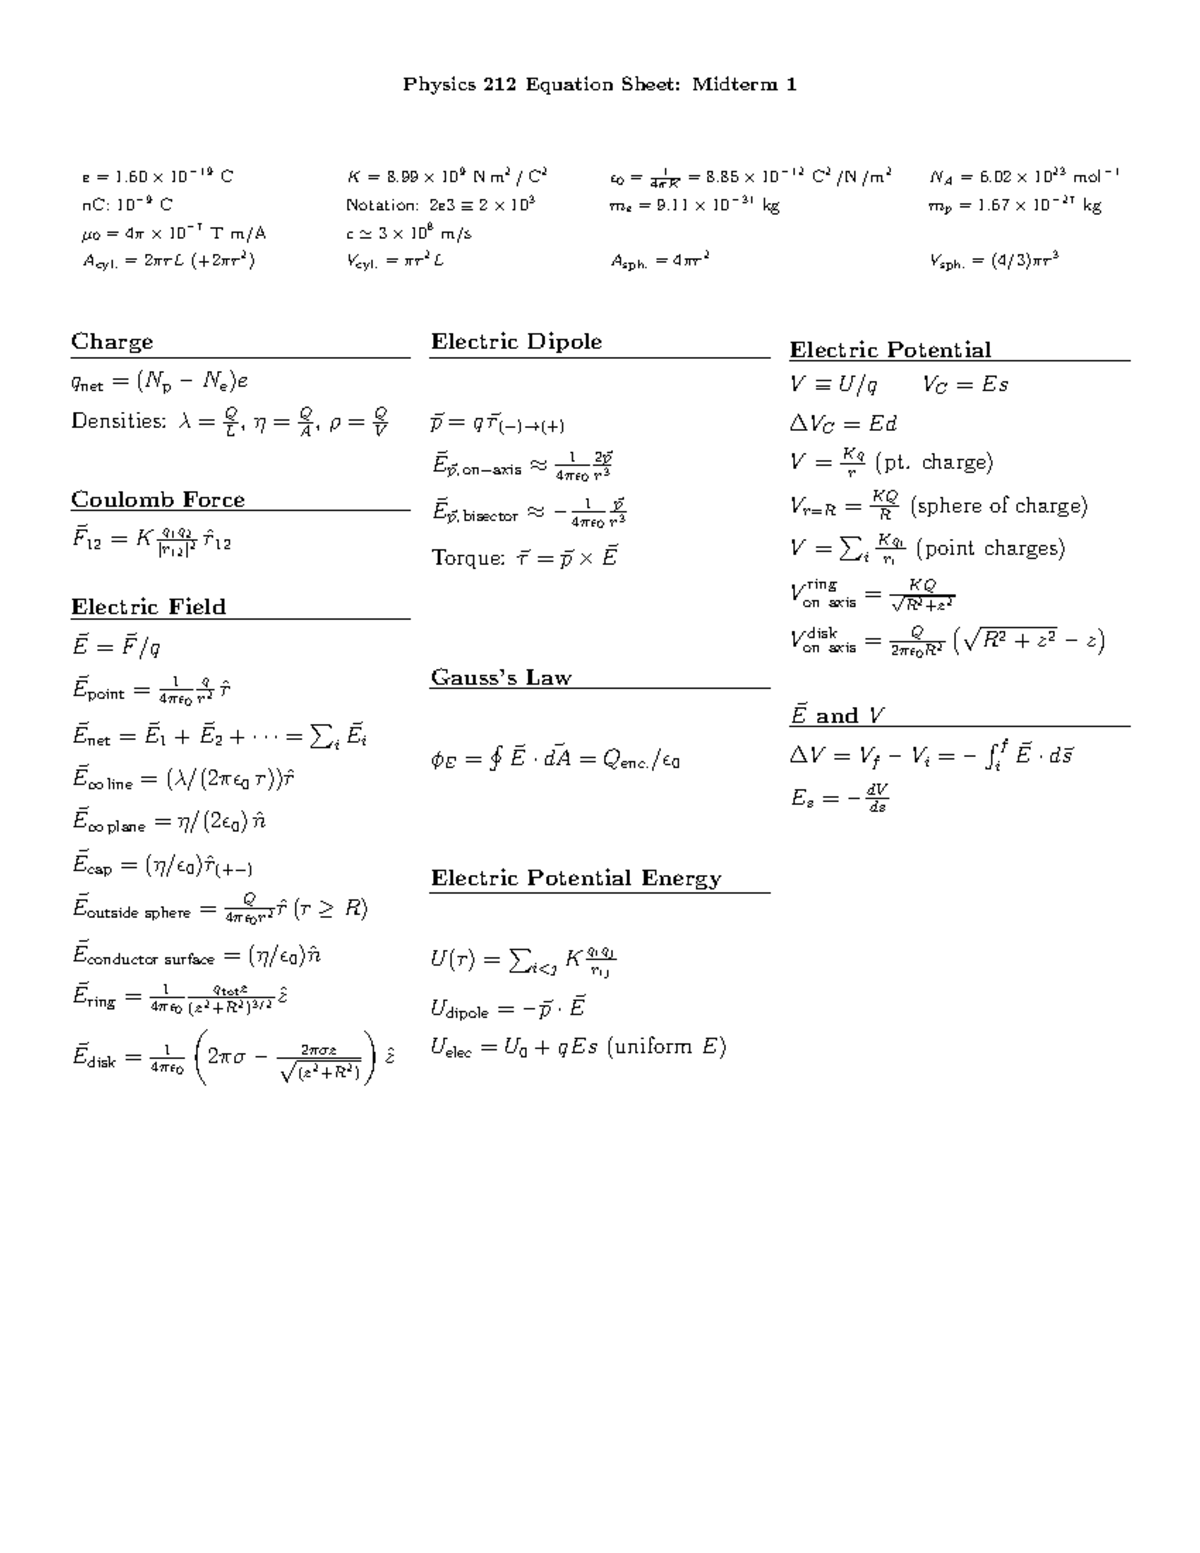 Physics 212 Equation Sheet: Midterm 1
e = 1.60 × 10⁻¹⁹ C    K = 8.99 × 10⁹ N m² / C²    ϵ₀ = 1/(4πK) = 8.85 × 10⁻¹² C² /N /m²    N_A = 6.02 × 10²³ mol⁻¹
nC: 10⁻⁹ C    Notation: 2e3 ≡ 2 × 10³    mₑ = 9.11 × 10⁻³¹ kg    m_p = 1.67 × 10⁻²⁷ kg
μ₀ = 4π × 10⁻⁷ T m/A    c ≃ 3 × 10⁸ m/s
A_cyl. = 2πrL (+2πr²)    V_cyl. = πr²L    A_sph. = 4πr²    V_sph. = (4/3)πr³
Charge
q_net = (N_p − N_e)e
Densities: λ = Q/L, η = Q/A, ρ = Q/V
Coulomb Force
F⃗₁₂ = K q₁q₂/|r₁₂|² r̂₁₂
Electric Field
E⃗ = F⃗/q
E⃗_point = 1/(4πϵ₀) q/r² r̂
E⃗_net = E⃗₁ + E⃗₂ + · · · = ∑_i E⃗_i
E⃗_∞ line = (λ/(2πϵ₀ r))r̂
E⃗_∞ plane = η/(2ϵ₀) n̂
E⃗_cap = (η/ϵ₀)r̂_(+−)
E⃗_outside sphere = Q/(4πϵ₀r²) r̂ (r ≥ R)
E⃗_conductor surface = (η/ϵ₀)n̂
E⃗_ring = 1/(4πϵ₀) q_tot z/(z²+R²)^(3/2) ẑ
E⃗_disk = 1/(4πϵ₀) (2πσ − 2πσz/√(z²+R²)) ẑ
Electric Dipole
p⃗ = q r⃗_(−)→(+)
E⃗_p⃗,on−axis ≈ 1/(4πϵ₀) 2p⃗/r³
E⃗_p⃗,bisector ≈ − 1/(4πϵ₀) p⃗/r³
Torque: τ⃗ = p⃗ × E⃗
Gauss's Law
ϕ_E = ∮ E⃗ · dA⃗ = Q_enc./ϵ₀
Electric Potential Energy
U(r) = ∑_i<j K q_i q_j/r_ij
U_dipole = −p⃗ · E⃗
U_elec = U₀ + qEs (uniform E)
Electric Potential
V ≡ U/q    V_C = Es
ΔV_C = Ed
V = Kq/r (pt. charge)
V_r=R = KQ/R (sphere of charge)
V = ∑_i Kq_i/r_i (point charges)
V^ring_on axis = KQ/√(R²+z²)
V^disk_on axis = Q/(2πϵ₀R²) (√(R² + z²) − z)
E⃗ and V
ΔV = V_f − V_i = − ∫_i^f E⃗ · ds⃗
E_s = − dV/ds